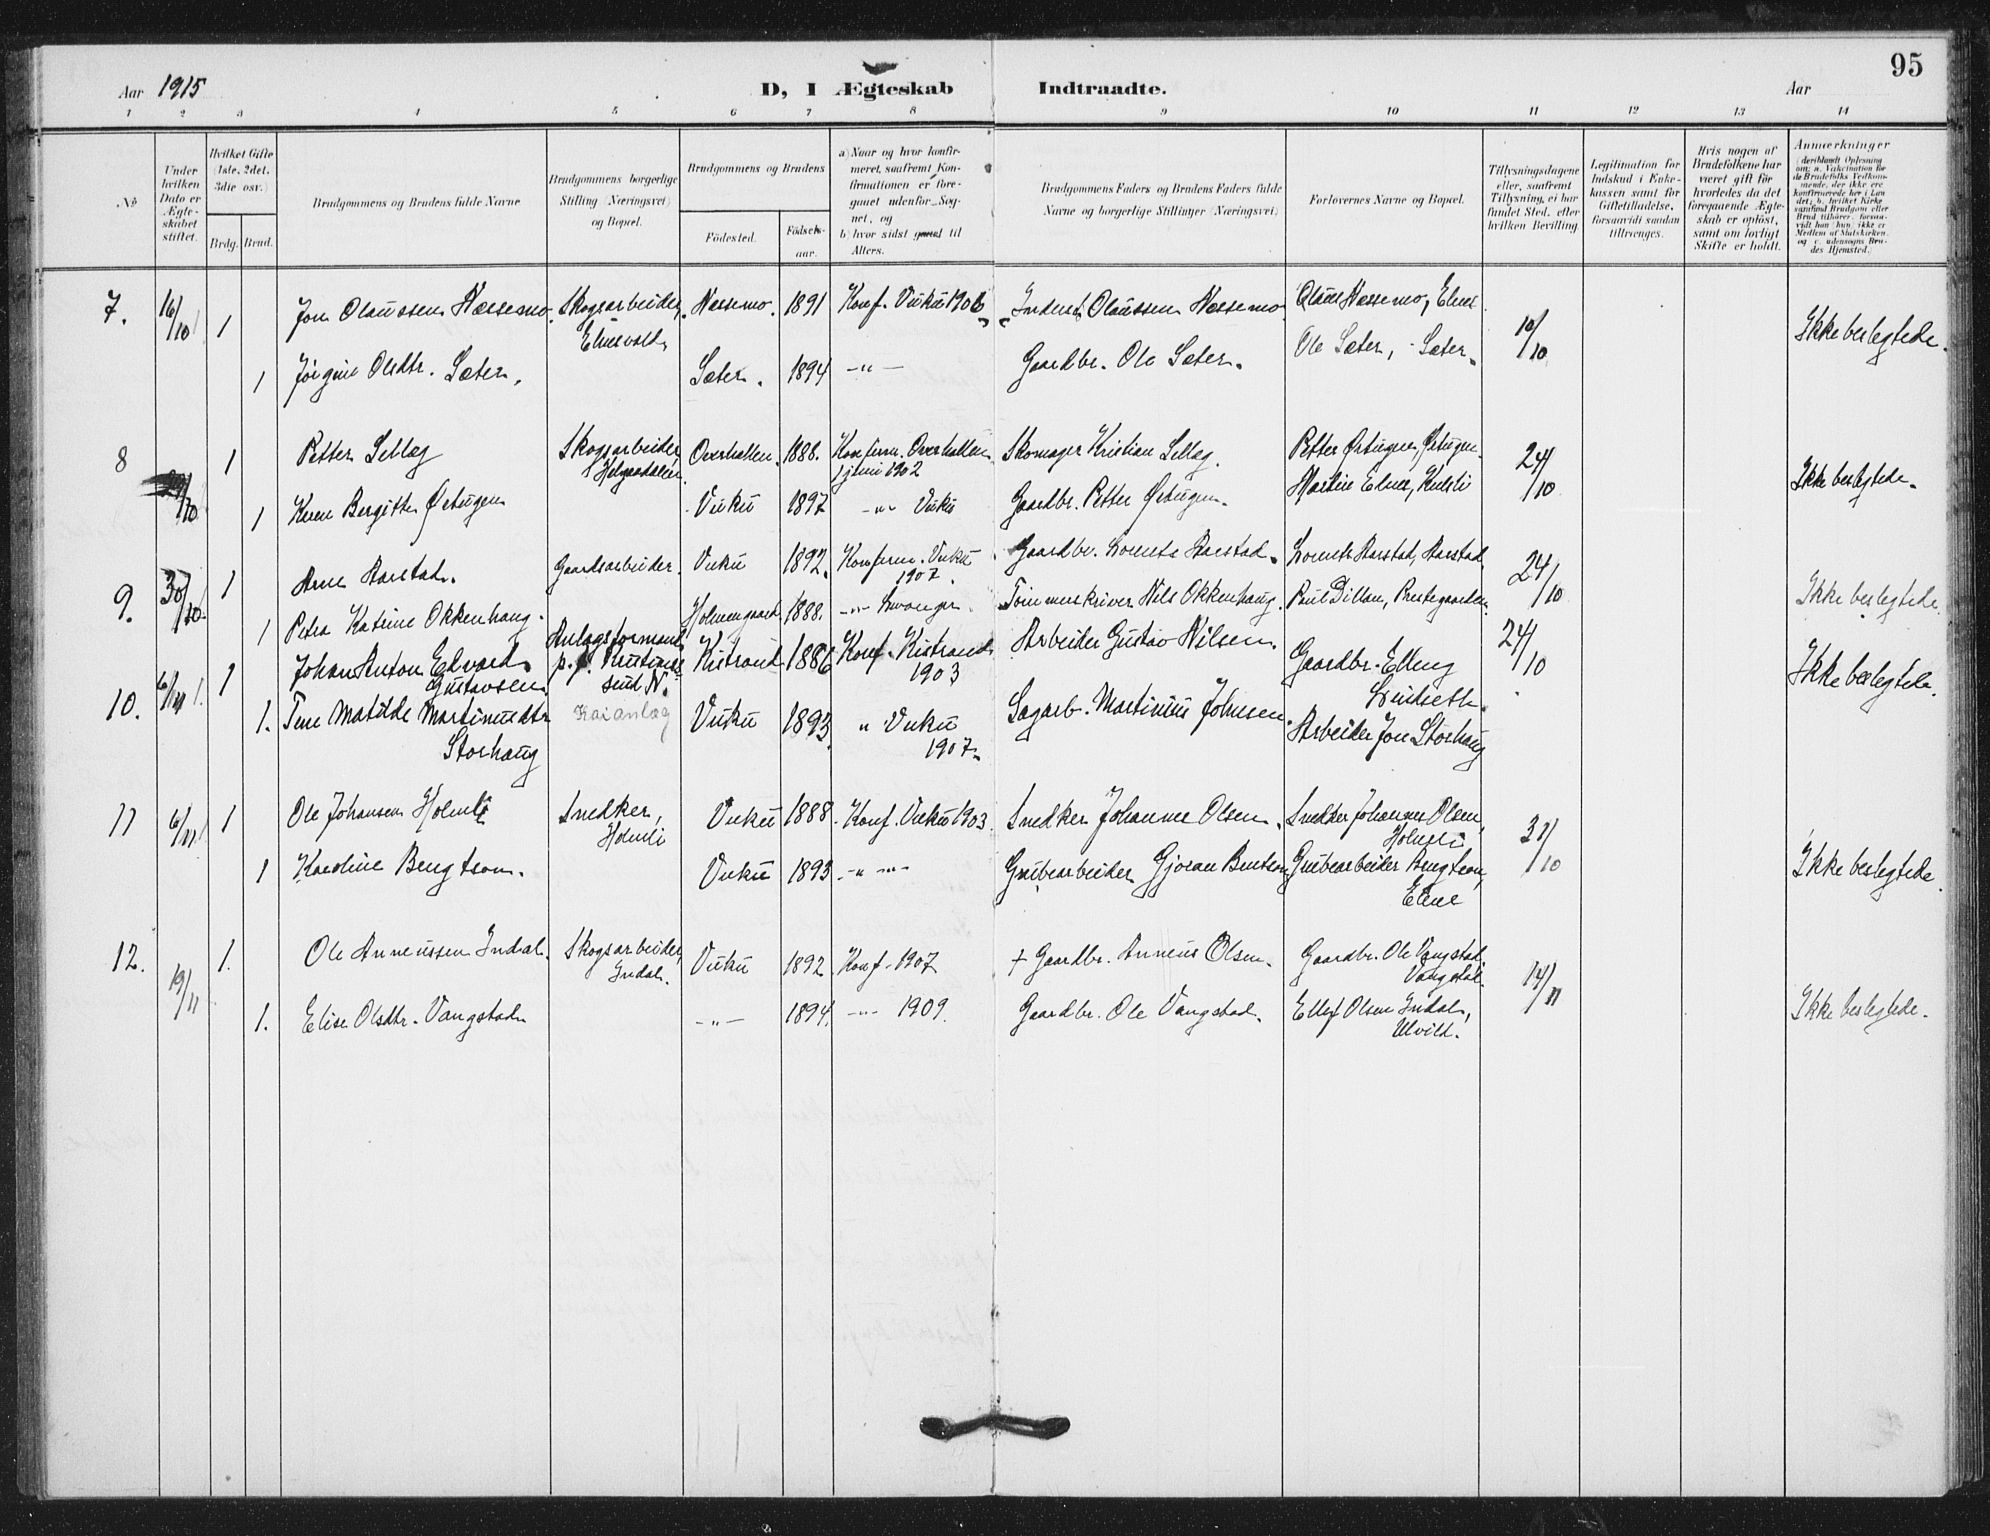 95
Aar 1915 D, I Ægteskab Indtraadte. Aar
1 2 3 4 5 6 7 8 9 10 11 12 13 14
No
Under hvilken Dato er Ægteskabet stiftet.
Hvilket Gifte (1ste, 2det, 3die osv.)
Brdg. Brud.
Brudgommens og Brudens fulde Navne
Brudgommens borgerlige Stilling (Næringsvei) og Bopæl.
Brudgommens og Brudens
Fødested. Fødselsaar.
a) Naar og hvor konfirmeret, saafremt Konfirmationen er foregaaet udenfor Sognet, og
b) hvor sidst gaaet til Alters.
Brudgommens Faders og Brudens Faders fulde Navne og borgerlige Stillinger (Næringsvei)
Forlovernes Navne og Bopæl.
Tillysningsdagene eller, saafremt Tillysning, ei har fundet Sted, efter hvilken Bevilling.
Legitimation for Indskud i Enkekassen samt for Giftetilladelse, forsaavidt saadan tiltrænges.
Hvis nogen af Brudefolkene har været gift før hvorledes da det foregaaende Ægteskab er opløst, samt om lovligt Skifte er holdt.
Anmærkninger
7. 16/10 1 Jon Olaussen Næssemo. Skogsarbeider, Elnesvold Næssemo. 1891 Konf. Vuku 1906 Olaussen Næssemo Olaus Næssemo, Elnes 10/10 Ikke beslegtede.
1 Jørgine Olsdtr. Sæter. Sæter. 1894 -"- Gaardbr. Ole Sæter. Ole Sæter, Sæter.
8 /10 1 Petter Sellæg Skogsarbeider Helgaadalen. Overhallen. 1888. Konfirm. Overhallen juni 1902 Skomager Kristian Sellæg. Petter Østugen, Østugen. 24/10 Ikke beslegtede.
1 Karen Bergitte Østugen Vuku 1897 -"- Vuku Gaardbr. Petter Østugen. Martin Elnes,
9. 30/10. 1 Arne Aarstad. Gaardsarbeider. Vuku 1892. Konfirm. Vuku 1907. Gaardbr. Lorents Aarstad. Lorents Aarstad, Aarstad. 24/10 Ikke beslegtede.
1 Petra Katrine Okkenhaug. 1888. -"- Levanger Tømmerskriver Nils Okkenhaug. Paul Dillan, Prestegaarden.
10. 6/11. 1 Johan Anton Edvard Gustavsen Anlægsformand Kistrand 1886 Konf. Kistrand 1903 Arbeider Gustav Nilsen Gaardbr. Elling 24/10 Ikke beslegtede.
1. Tine Matilde Martinusdtr Storhaug Kaianlæg Vuku 1893. " Vuku 1907. Sagarb. Martinus Johnsen. Arbeider Jon Storhaug
11 6/11 1 Ole Johansen Holmli Snedker, Holmli Vuku 1888. Konf. Vuku 1903. Snedker Johannes Olsen. Snedker Johannes Olsen, Holmli 31/10 Ikke beslegtede.
1 Karoline Bengtson. Vuku 1893 -"- Grubearbeider Gjøran Bentson Grubearbeider Bengtson, Elnes
12. 19/11 1. Ole Anneussen Indal. Skogsarbeider, Indal. Vuku 1892 Konf. 1907 + Gaardbr. Anneus Olsen. Gaardbr. Ole Vangstad, Vangstad. 14/11 Ikke beslegtede.
1. Elise Olsdtr. Vangstad -"- 1894. -"- 1909. Gaardbr. Ole Vangstad. Ellef Olsen Indal, Ulvild.